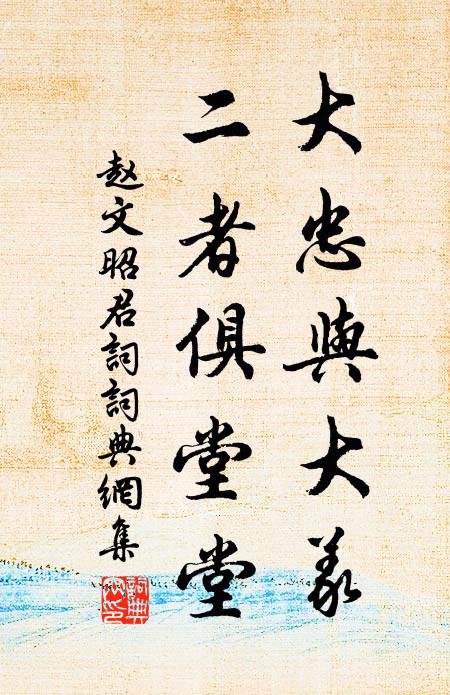 大忠與大義
二者俱堂堂
赵文昭君詞詞典網集